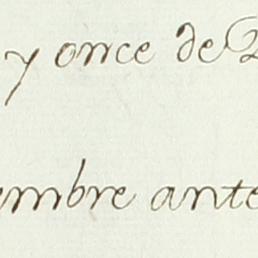 y once de
embre ante